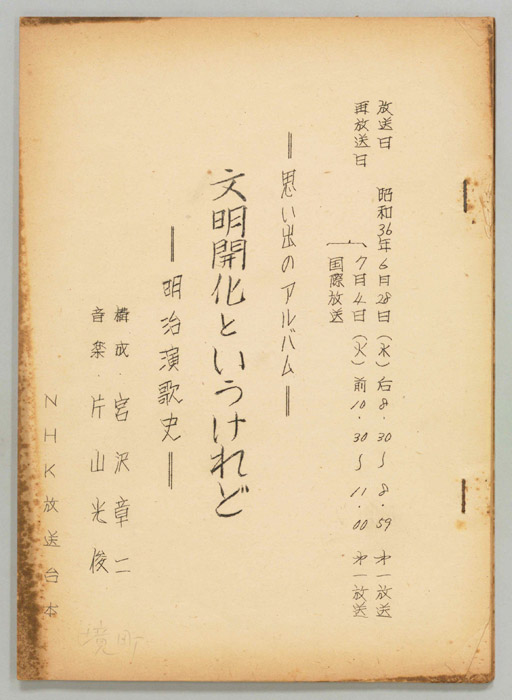 放送日 昭和36年6月28日(水)后8.30〜8.59 第一放送
再放送日 7月4日(火)前10.30〜11.00 第一放送
国際放送
思い出のアルバム
文明開化というけれど
明治演歌史
構成 宮沢章二
音楽・片山光俊
NHK放送台本
境町